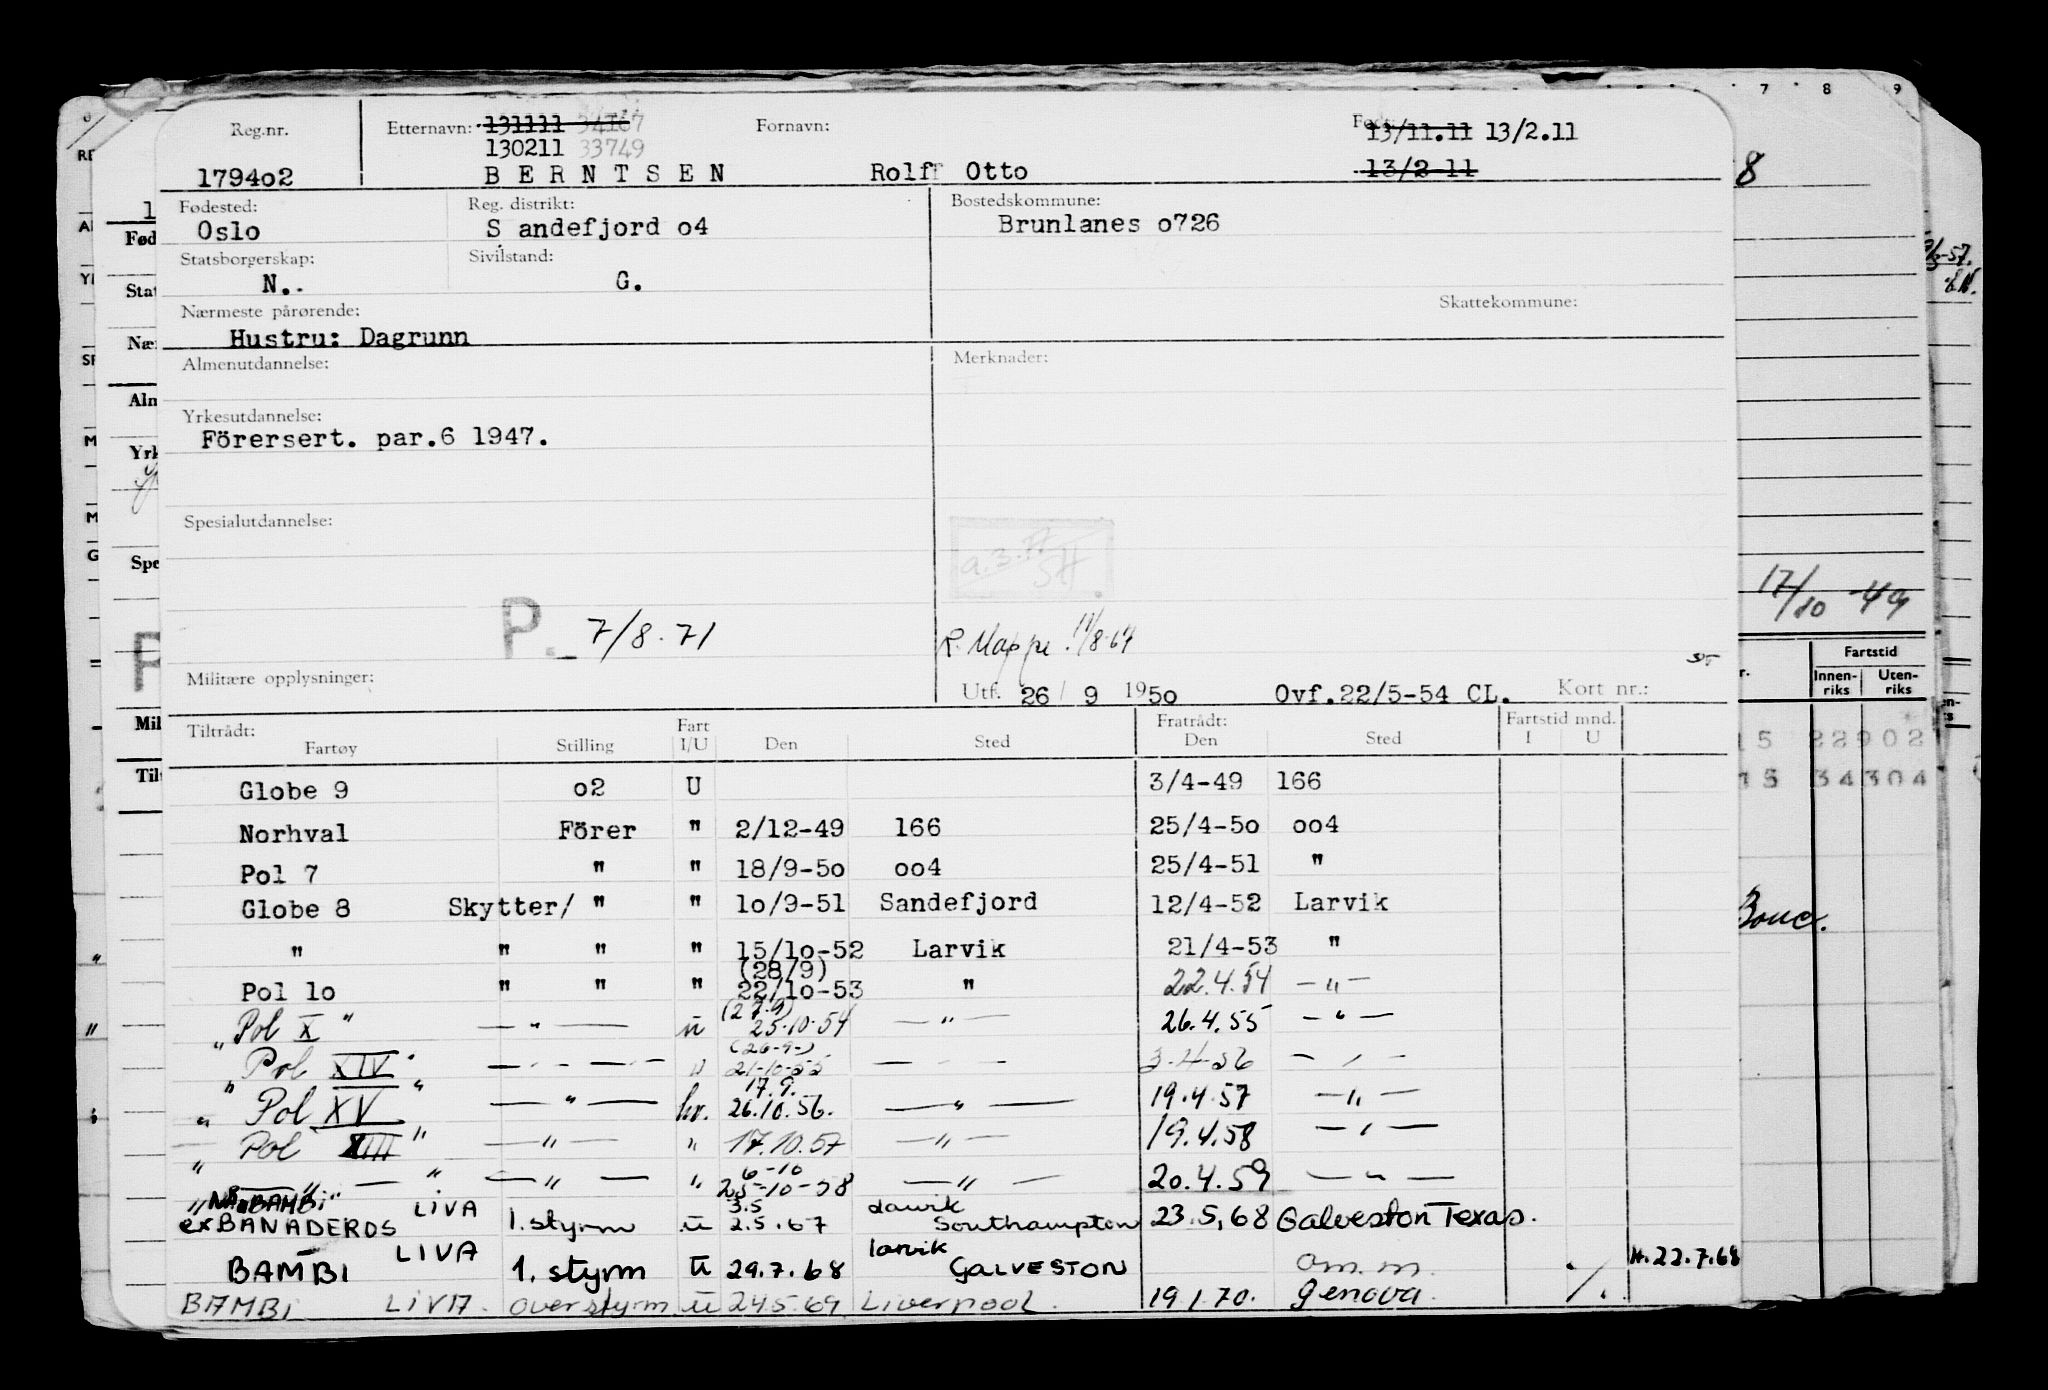 Reg.nr. Etternavn: 131111 34167 Fornavn: Født: 13/11.11 13/2.11
130211 33749
179402 BERNTSEN Rolf Otto 13/2-11
Fødested: Reg. distrikt: Bostedskommune:
Oslo S andefjord o4 Brunlanes o726
Statsborgerskap: Sivilstand:
N. G.
Nærmeste pårørende: Skattekommune:
Hustru: Dagrunn
Almenutdannelse: Merknader:
Yrkesutdannelse:
Förersert. par.6 1947.
Spesialutdannelse:
P. 7/8.71 R. Mappe 11/8.67
Militære opplysninger: Utf. 26/ 9 1950 Ovf.22/5-54 CL. Kort nr.:
Tiltrådt: Fart Fratrådt: Fartstid mnd.
Fartøy Stilling I/U Den Sted Den Sted I U
Globe 9 o2 U 3/4-49 166
Norhval Förer " 2/12-49 166 25/4-5o oo4
Pol 7 " " 18/9-5o oo4 25/4-51 "
Globe 8 Skytter/ " " 1o/9-51 Sandefjord 12/4-52 Larvik
" " " " 15/1o-52 Larvik 21/4-53 "
(28/9)
Pol 1o " " " 22/1o-53 " 22.4.54 — " —
(27.9)
"Pol X" — " — u 25.10.54 — " — 26.4.55 — " —
(26-9-)
"Pol XIV" — " — " 21-10-55 — " — 3-4-56 — " —
17.9.
"Pol XV" — " — hv. 26.10.56. — " — 19.4.57 — " —
"Pol XIII" — " — " 17.10.57 — " — 19.4.58 — " —
6-10
" — " — " — " — " 25-10-58 — " — 20.4.59 — " —
"BAMBI" 3.5 Larvik
ex BANADEROS LIVA 1. styrm u 2.5.67 Southampton 23.5.68 Galveston Texas.
BAMBI LIVA 1. styrm u 29.7.68 larvik GALVESTON om.m. ./. H.22.7.68
BAMBI LIVA. overstyrm u 24.5.69 Liverpool. 19.1.70. Genova.
7 8 9
8
17/10 -49
Fartstid
Innen-riks Uten-riks
15 22902
15 34304
Bouc.